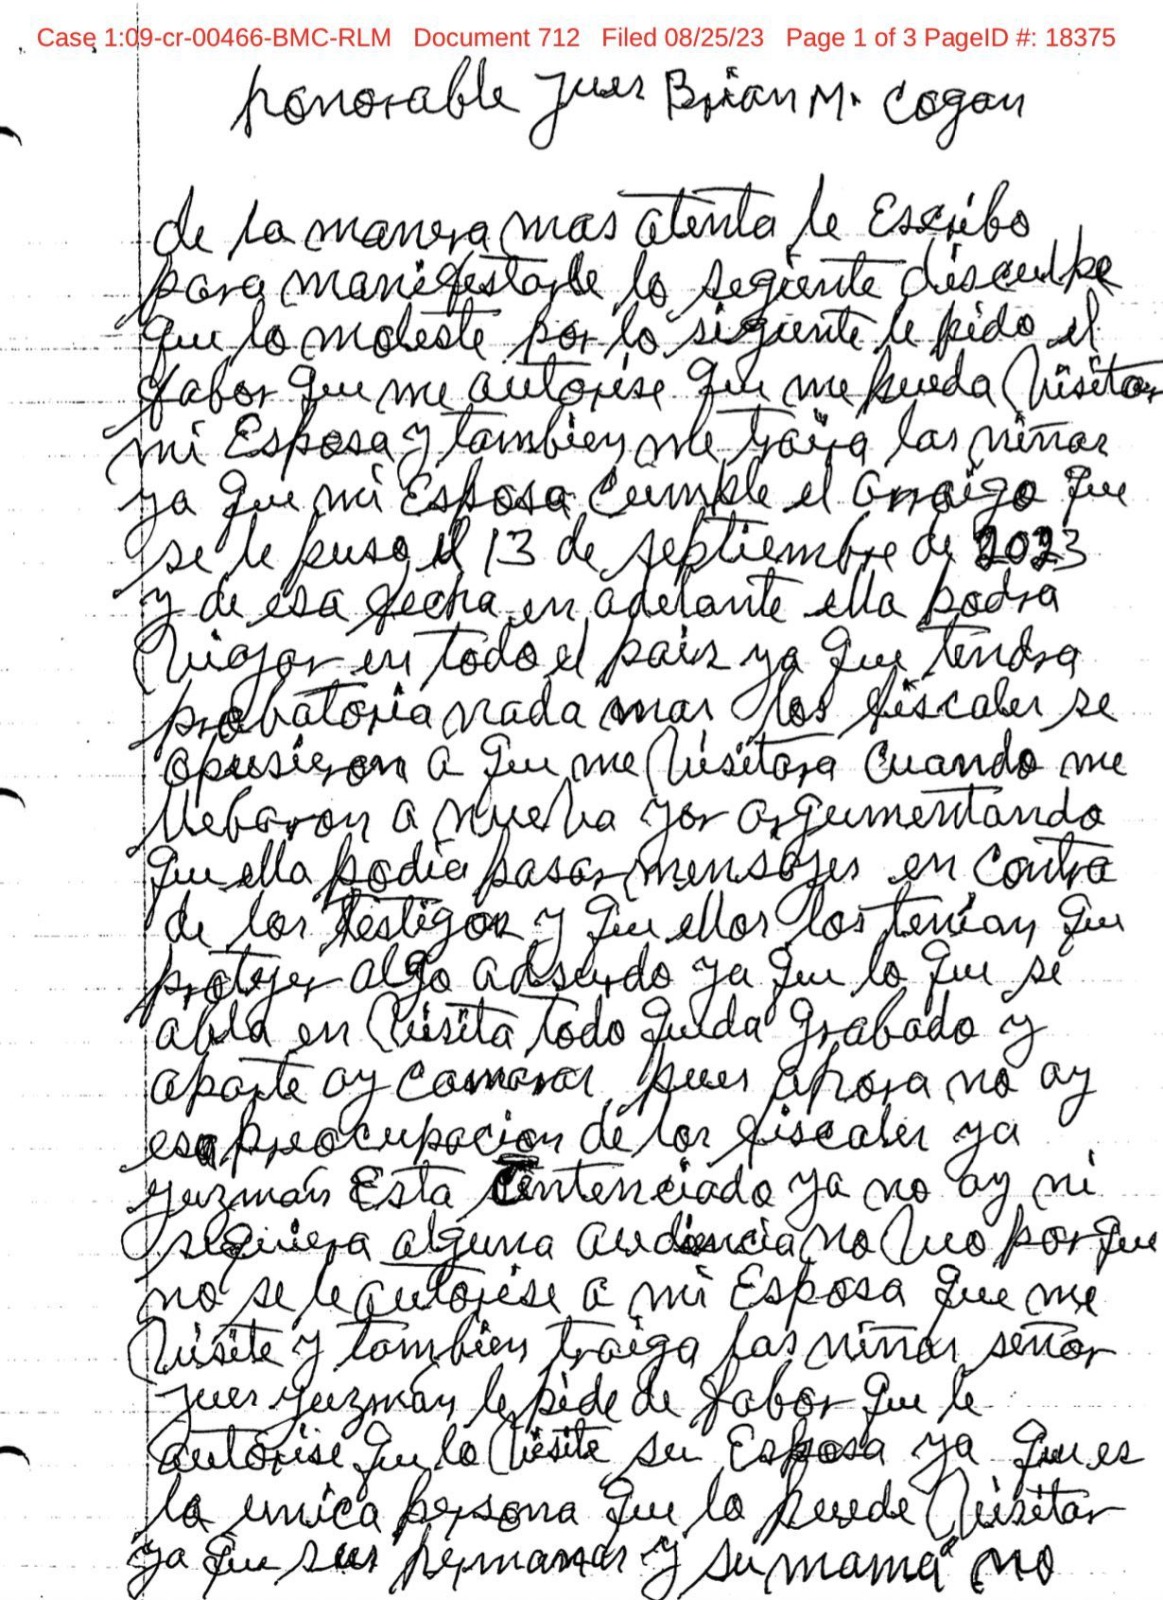 Case 1:09-cr-00466-BMC-RLM Document 712 Filed 08/25/23 Page 1 of 3 PageID #: 18375
honorable juez Brian M. Cogan
de la manera mas atenta le Escribo
para manifestarle lo segiente disculpe
que lo moleste por lo sigiente le pido el
fabor que me autorise que me pueda visitar
mi Esposa y tambien me traiga las niñas
ya que mi Esposa cumple el arraigo que
se le puso el 13 de septiembre de 2023
y de esa fecha en adelante ella podra
viajar en todo el pais ya que tendra
probatoria nada mas los fiscales se
opusieron a que me visitara cuando me
llebaron a nueva yor argumentando
que ella podia pasar mensajes en contra
de los testigos y que ellos los tenian que
protejer algo adsurdo ya que lo que se
abla en visita todo queda grabado y
aparte ay camaras pues ahora no ay
esa preocupacion de los fiscales ya
guzmán Esta sentenciado ya no ay ni
siquiera alguna audiencia no veo porque
no se le autorise a mi Esposa que me
visite y tambien traiga las niñas señor
juez guzmán le pide de fabor que le
autorise que lo visite su Esposa ya que es
la unica persona que lo puede visitar
ya que sus hermanas y su mamá no